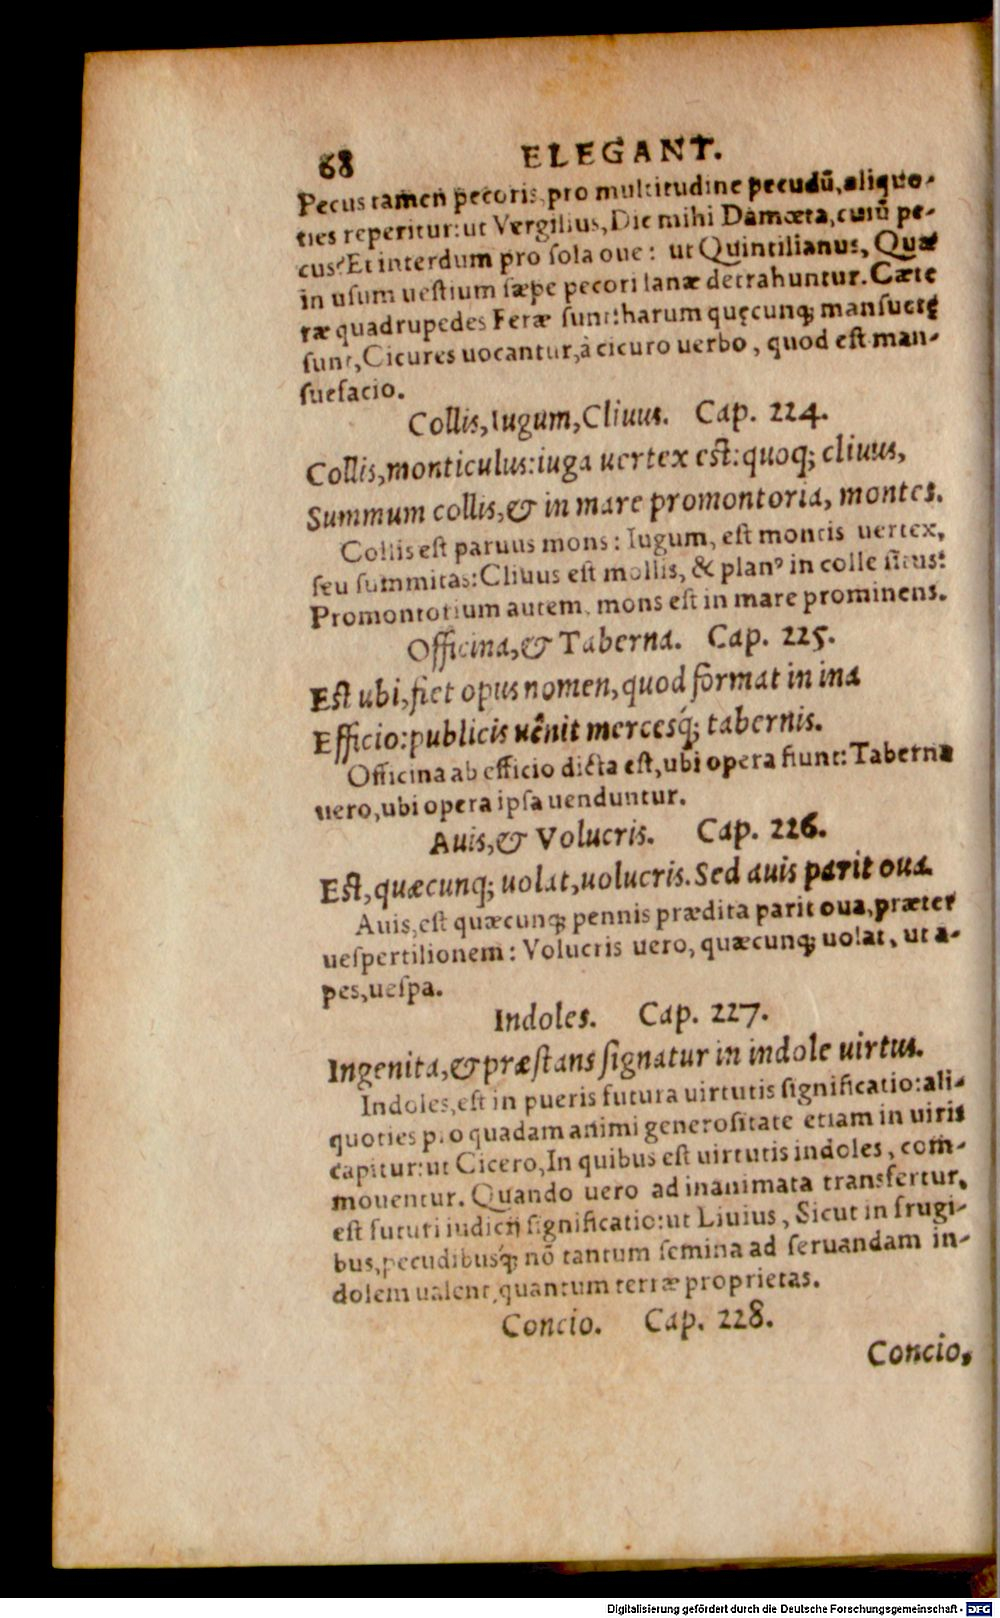 68 ELEGANT.
Pecus tamen pecoris, pro multitudine pecudū, aliquo-
ties reperitur: ut Vergilius, Dic mihi Damœta, cuiū pe-
cus? Et interdum pro sola oue: ut Quintilianus, Quæ
in usum uestium sæpe pecori lanæ detrahuntur. Cæte
ræ quadrupedes Feræ sunt: harum quęcunq; mansuetę
sunt, Cicures uocantur, à cicuro uerbo, quod est man-
suefacio.
Collis, Iugum, Cliuus. Cap. 224.
Collis, monticulus: iuga uertex est: quoq; cliuus,
Summum collis, & in mare promontoria, montes.
Collis est paruus mons: Iugum, est montis uertex,
seu summitas: Cliuus est mollis, & planꝰ in colle situs:
Promontorium autem, mons est in mare prominens.
Officina, & Taberna. Cap. 225.
Est ubi, fiet opus nomen, quod format in ina
Efficio: publicis uênit mercesq́; tabernis.
Officina ab efficio dicta est, ubi opera fiunt: Taberna
uero, ubi opera ipsa uenduntur.
Auis, & Volucris. Cap. 226.
Est, quæcunq; uolat, uolucris. Sed auis parit oua.
Auis, est quæcunq; pennis prædita parit oua, præter
uespertilionem: Volucris uero, quæcunq; uolat, ut a-
pes, uespa.
Indoles. Cap. 227.
Ingenita, & præstans signatur in indole uirtus.
Indoles, est in pueris futura uirtutis significatio: ali-
quoties pro quadam animi generositate etiam in uiris
capitur: ut Cicero, In quibus est uirtutis indoles, com-
mouentur. Quando uero ad inanimata transfertur,
est futuri iudicij significatio: ut Liuius, Sicut in frugi-
bus, pecudibusq́; nō tantum semina ad seruandam in-
dolem ualent, quantum terræ proprietas.
Concio. Cap. 228.
Concio,
Digitalisierung gefördert durch die Deutsche Forschungsgemeinschaft - DFG